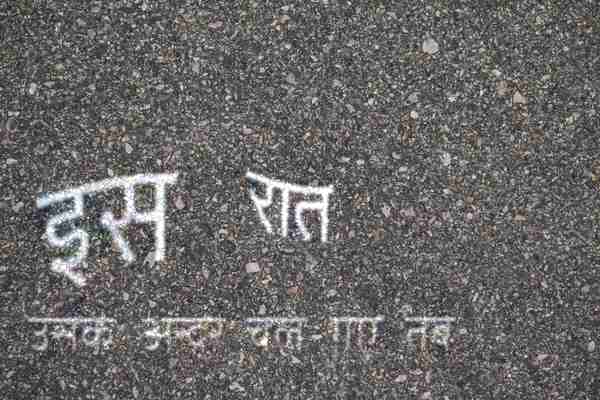 इस रात
उसके अन्दर चले गए तब